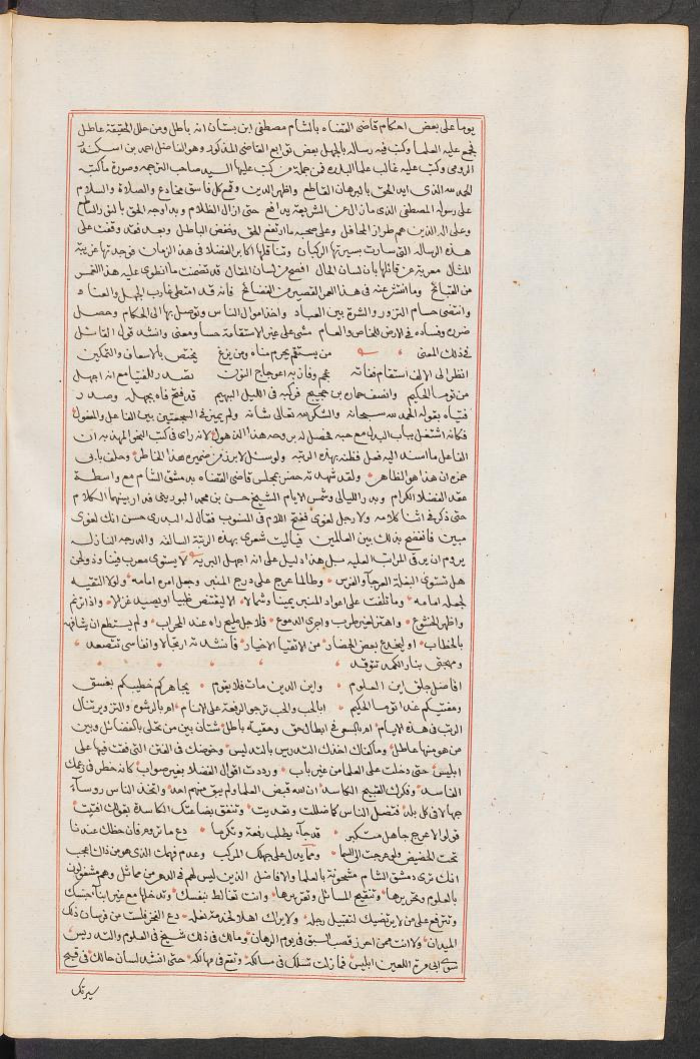 يوما على بعض احكام قاضى القضاه بالشام مصطفى ابن بستان انه باطل ومن حلل الحقيقة عاطل
فجمع عليه العلما وكتب فيه رساله بالجهل بعض توابع القاضى المذكور وهو الفاضل احمد بن اسكندر
الرومى وكتب عليه غالب علما البلده فمن جملة من كتب عليها السيد صاحب الترجمه وصورة ما كتبه
الحمد لله الذى ايد الحق بالبرهان القاطع واظهر الدين وقمع كل فاسق مخادع والصلاة والسلام
على رسوله المصطفى الذى مازال عن الشريعة يدافع حتى ازال الظلام وبدا وجه الحق بالنور الساطع
وعلى اله الذين هم طراز المحافل وعلى صحبه ما ارتفع الحق وخفض الباطل وبعد فقد وقفت على
هذه الرساله التى سارت بسيرتها الركبان وتناقلها اكابر الفضلا فى هذ الزمان فوجدتها غريبة
المثال معربة عن قائلها بان لسان الحال افصح من لسان المقال قد تضمنت ما انطوى عليه هذا الغمر
من القبائح وما انتشر عنه فى هذا العمر القصير من الفضائح فانه قد امتطى غارب الجهل والعناد
وانتضى حسام التزور والشرة بين العباد واخذ اموال الناس وتوصل بها الى الحكام وحصل
ضرره وفساده فى الارض للخاص والعام مشى على غير الاستقامة حسا ومعنى وانشد قول القائل
فى ذلك المعنى من يستقم يحرم مناه ومن يزغ يختص بالاسعاف والتمكين
انظر الى الالف استقام ففاته عجم وفاز به اعوجاج النون تصدر للفتيا مع انه اجهل
من توما الحكيم وانصف حماره بن حجيج فركبه فى الليل البهيم قد فتح فاه بجهله وصدر
فتياه بقوله الحمد لله سبحانه والشكر لله تعالى شانه ولم يميز فى السجعتين بين الفاعل والمفعول
فكانه اشتغل بباب البدل مع حبه فحصل له بروحه هذا الذهول لانه راى فى كتب النحو المهذبه ان
الفاعل ما اسند اليه فعل فظنه بهذه الرتبه ولو سئل لابرز من ضميره هذا الخاطر وحلف بابى
حمزه ان هذا هو الظاهر ولقد شهدته حضر بمجلس قاضى القضاه بدمشق الشام مع واسطة
عقد الفضلا الكرام وبدر الليالى وشمس الايام الشيخ حسن بن محمد البورينى فدار بينهما الكلام
حتى ذكر فى اثنا كلامه ولا رجل لغوى ففتح اللام فى المنسوب فقال له البدرى حسن انك لغوى
مبين فافتضح بذلك بين العالمين فياليت شعرى بهذه الرتبة السافله والدرجه النازله
يروم ان يرقى المراتب العليه سبل هذا دليل على انه اجهل البريه لا يستوى معرب فينا وذو لحن
هل تستوى البغلة العرجا والفرس وطالما عرج على درج المنبر وجعل امره امامه ولولا التقيه
لجعله امامه وما تلفت على اعواد المنبر يمينا وشمالا الا ليقتنص ظبيا او يصيد غزالا واذا ترنم
واظهر الخشوع واهتز لغير طرب واجرى الدموع فلاجل مليح راه عند المحراب ولم يستطع ان يشافهه
بالخطاب او ليخدع بعض الحضار من الاتقيا الاخيار فانشدته ارتجالا وانفاسى تتصعد
ومهجتى بنار الكمد تتوقد
افاضل جلق اين العلوم واين الدين مات فلا يقوم يجاهركم خطيبكم بفسق
ومفتيكم غدا توما الحكيم ابالحب والحب ترجو الرفعة على الانام ام بالرشوه والتزوير تنال
الرتب فى هذه الايام ام بالسعى فى ابطال حق وحقيقة باطل شتان بين من تحلى بالفضائل وبين
من هو منها عاطل وما كفاك اخذك التدريس بالتدليس وخوضك فى الفتن التى فقت فيها على
ابليس حتى دخلت على العلما من غير باب ورددت اقوال الفضلا بغير صواب كانه خطر فى زعمك
الفاسد وفكرك القبيح الكاسد ان الله قبض العلما ولم يبق منهم احد واتخذ الناس روسآء
جهالا فى كل بلد فتضل الناس كما ضللت وتعديت وتنفق بضاعتك الكاسدة بقولك افتيت
قولوا لاعرج جاهل مستكبر قد جآء يطلب رفعة وتكرما دع ما تروم فان حظك عندنا
تحت الحضيض ولو عرجت الى السما ومما يدل على جهلك المركب وعدم فهمك الذى هو من ذاك اعجب
انك ترى دمشق الشام مشحونة بالعلما والافاضل الذين ليس لهم فى الدهر من مماثل وهم مشغولون
بالعلوم وتحريرها وتنقيح المسائل وتقريرها وانت تغالط بنفسك وتدخلها مع غير ابنآء جنسك
وتترفع على من لا يرتضيك لتقبيل رجله ولا يراك اهلا لخدمة نعله دع الفخر فلست من فرسان ذلك
الميدان ولا انت ممن احرز قصب السبق فى يوم الرهان ومالك فى ذلك شيخ فى العلوم والتدريس
سوى ابى مرة اللعين ابليس فما زلت تسلك فى مسالكه وتقع فى مهالكه حتى انشد لسان حالك فى قبيح
سيرتك